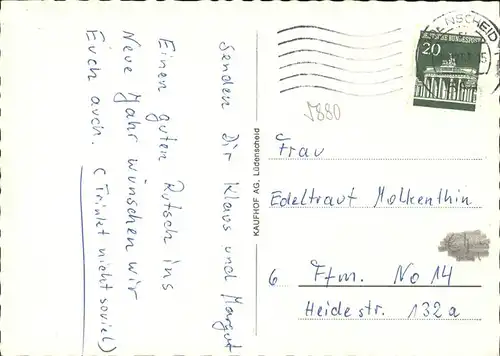 senden Dir Klaus und Margut
Einen guten Rutsch ins
Neue Jahr wünschen wir
Euch auch. (Trinkt nicht soviel)
KAUFHOF AG, Lüdenscheid
ENSCHEID
DEUTSCHE BUNDESPOST
20
5880
Frau
Edeltraut Molkenthin
6 Ffm. No 14
Heidestr. 132a